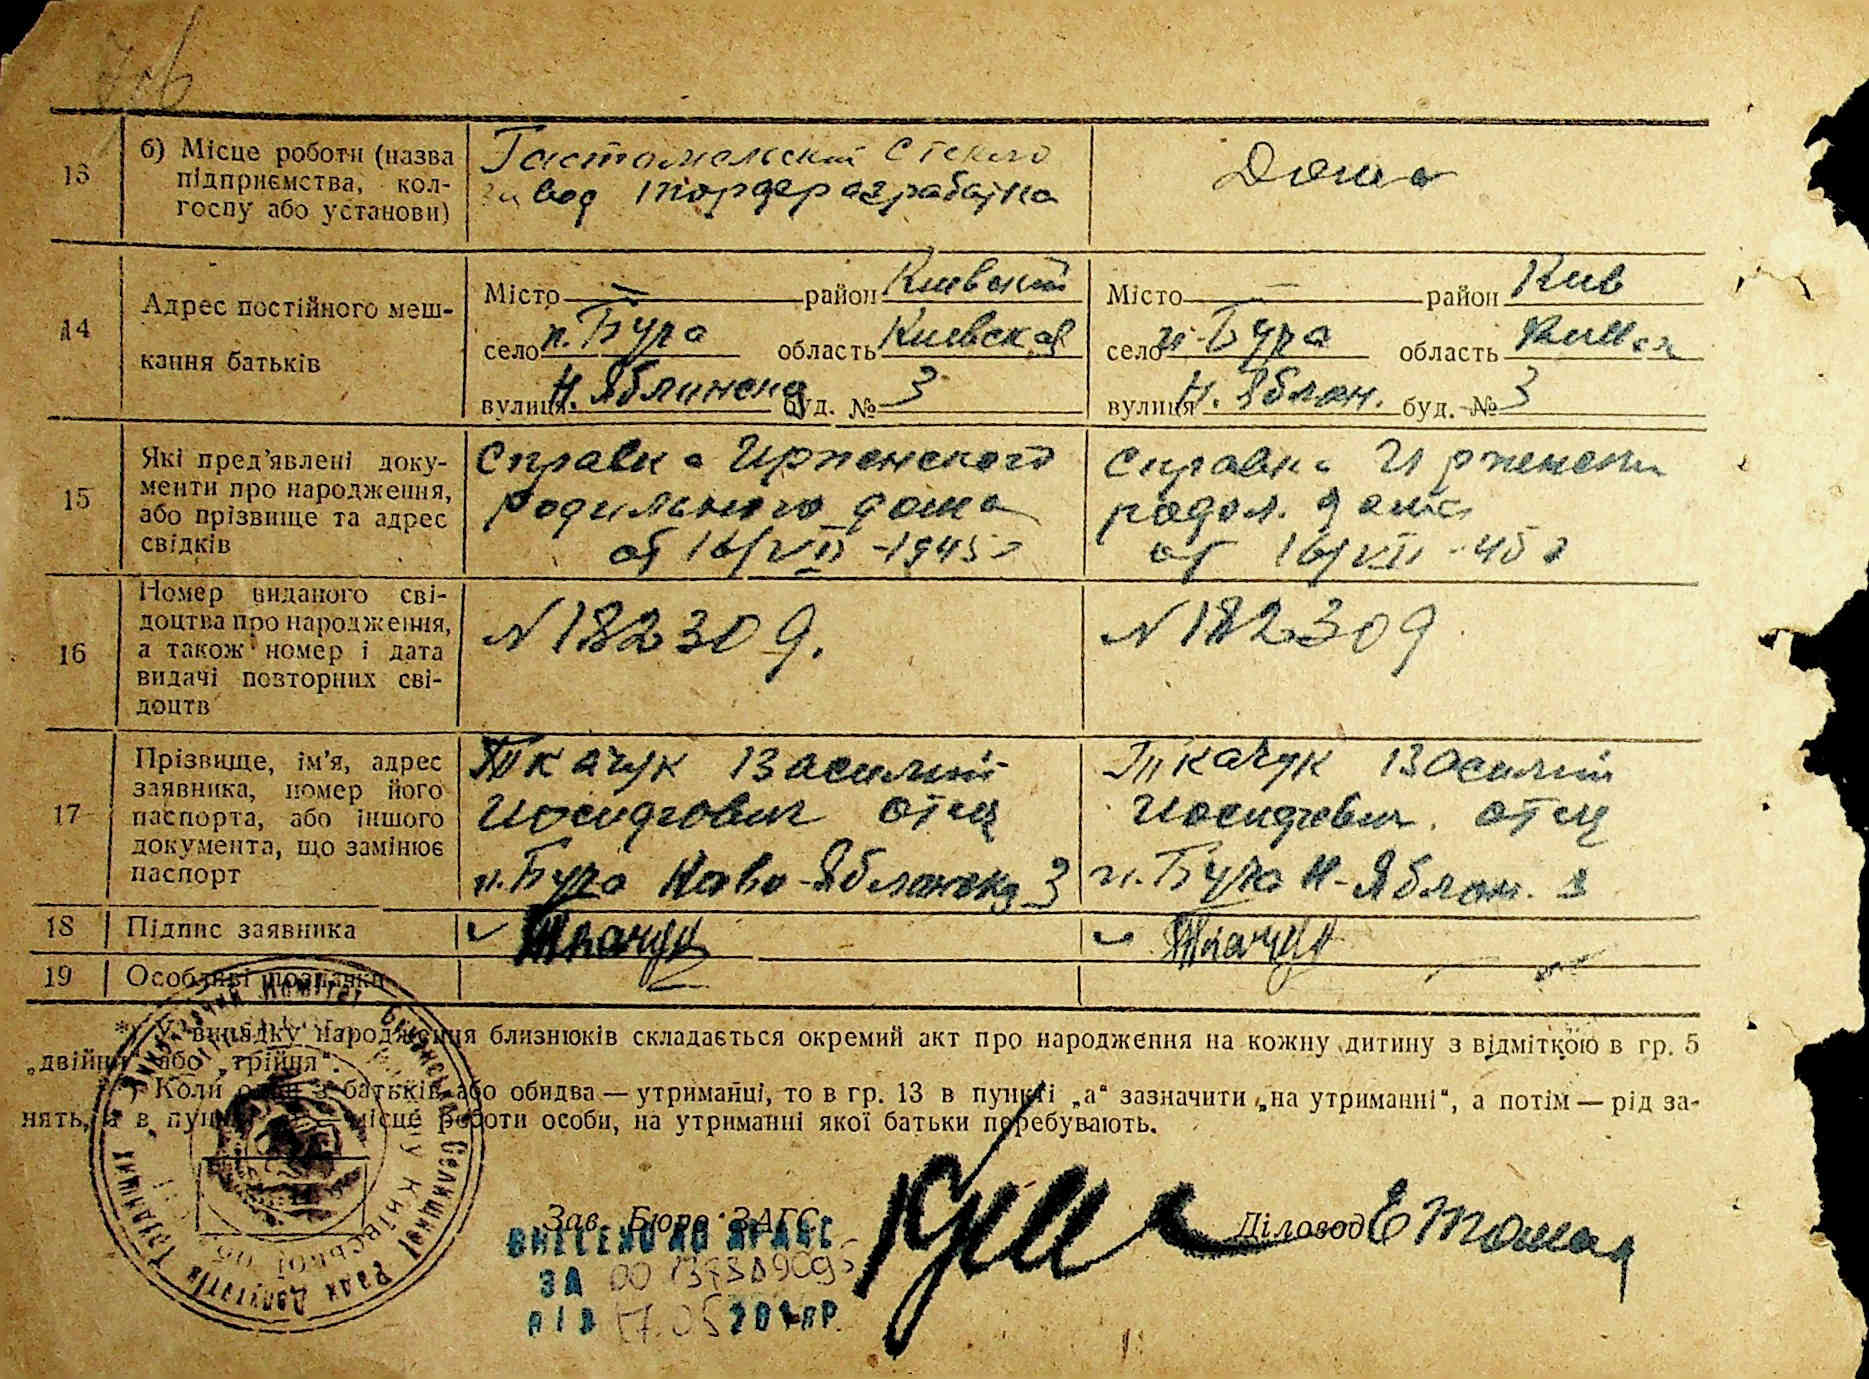 13
б) Місце роботи (назва підприємства, колгоспу або установи)
Гастомельский Стекло
завод торфоразработка
Дома
14
Адрес постійного меш-
кання батьків
Місто — район Киевский
село п. Буча область Киевская
вулиця Н. Яблонская буд. № 3
Місто — район Киев
село п. Буча область
вулиця Н. Яблон. буд. № 3
15
Які пред'явлені доку-
менти про народження,
або прізвище та адрес
свідків
Справка Ирпенского
родильного дома
от 16/VII - 1945 г
Справка Ирпенск
родил. дома
от 16/VII - 45 г
16
Номер виданого сві-
доцтва про народження,
а також номер і дата
видачі повторних сві-
доцтв
N 182309.
N 182309
17
Прізвище, ім'я, адрес
заявника, номер його
паспорта, або іншого
документа, що замінює
паспорт
Ткачук Василий
Иосифович отец
п. Буча Ново-Яблонская 3
Ткачук Василий
Иосифович. отец
п. Буча Н-Яблон. 3
18
Підпис заявника
Ткачук
Ткачук
19
Особливі позначки
*) У випадку народження близнюків складається окремий акт про народження на кожну дитину з відміткою в гр. 5
„двійня" або „трійня".
Коли один з батьків або обидва — утриманці, то в гр. 13 в пункті „а" зазначити „на утриманні", а потім — рід за-
нять, а в пункті — місце роботи особи, на утриманні якої батьки перебувають.
Зав. Бюро ЗАГС
Діловод
ВНЕСЕНО ДО ДРАЦС
ЗА
ВІД 17.05